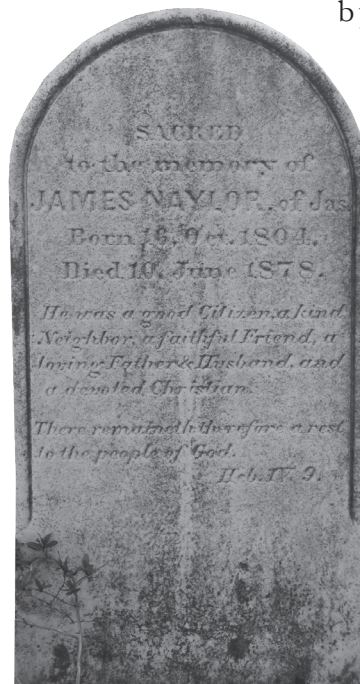 by
SACRED
to the memory of
JAMES NAYLOR. of Jas
Born 16. Oct. 1804.
Died 10. June 1878.
He was a good Citizen, a kind
Neighbor, a faithful Friend, a
loving Father & Husband, and
a devoted Christian.
There remaineth therefore a rest
to the people of God.
Heb. IV. 9.